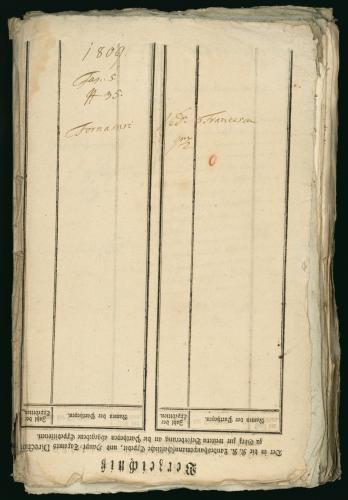 1809
Fag. 5
# 35.
Fornasari Ved.ª Francesca
Verzeichniß
Der in die K. K. Landeshauptmannschaftliche Expedit, und Haupt-Taxamts Direction
zu Görz zur weitern Beförderung an die Partheyen abgegebene Expeditionen.
Zahl der Expedition. Namen der Partheyen. Zahl der Expedition. Namen der Partheyen.